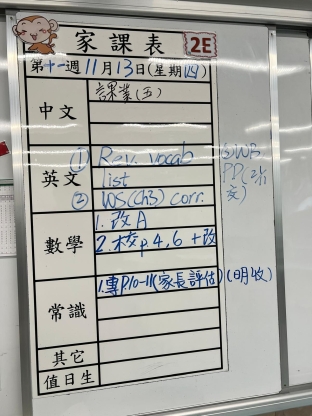 家課表 2E
第十一週 11月13日(星期四)
中文
課業(五)
英文
① Rev. vocab
list
② WS(ch3) corr.
GWB
數學
1. 改A
2. 校p4,6 +改
常識
1. 專P.10-11(家長評估)(明收)
其它
值日生